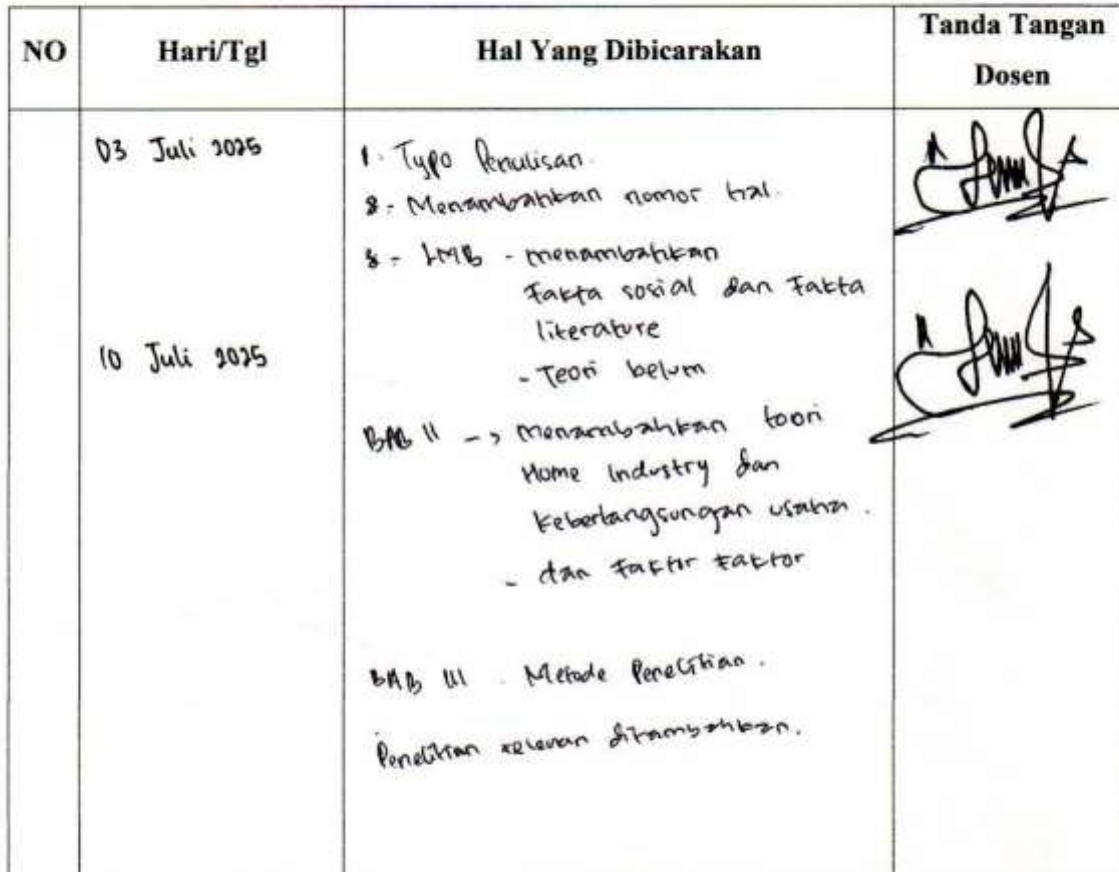 NO Hari/Tgl Hal Yang Dibicarakan Tanda Tangan Dosen
03 Juli 2025
1. Typo Penulisan.
- Menambahkan nomor hal.
- LMB - menambahkan
Fakta sosial dan Fakta
literature
10 Juli 2025
- Teori belum
BAB II -> Menambahkan teori
Home Industry dan
Keberlangsungan usaha.
- dan Faktor Faktor
BAB III . Metode Penelitian.
Penelitian relevan ditambahkan.